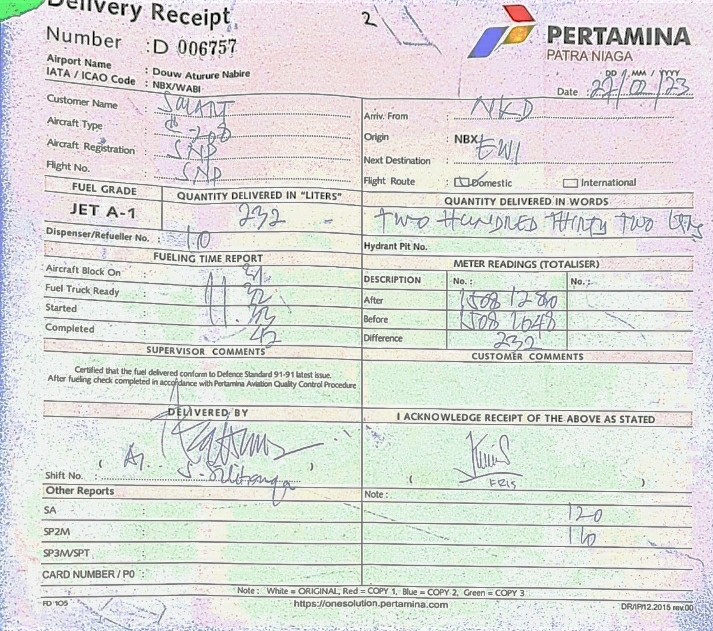 Delivery Receipt
2
Number : D 006757
PERTAMINA
PATRA NIAGA
Airport Name : Douw Aturure Nabire
IATA / ICAO Code : NBX/WABI
DD / MM / YYYY
Date : 22/02/23
Customer Name : SMART
Arriv. From NKD
Aircraft Type : C-208
Origin : NBX
Aircraft Registration : SNP
Next Destination : EWI
Flight No. : SNP
Flight Route : Domestic International
FUEL GRADE QUANTITY DELIVERED IN "LITERS" QUANTITY DELIVERED IN WORDS
JET A-1 232 TWO HUNDRED THIRTY TWO
Dispenser/Refueller No. : 10
Hydrant Pit No.
FUELING TIME REPORT METER READINGS (TOTALISER)
Aircraft Block On :
DESCRIPTION No. : No. :
Fuel Truck Ready : 32
After
Started : 11.33
Before
Completed : 42
Difference 232
SUPERVISOR COMMENTS CUSTOMER COMMENTS
Certified that the fuel delivered conform to Defence Standard 91-91 latest issue.
After fueling check completed in accordance with Pertamina Aviation Quality Control Procedure
DELIVERED BY I ACKNOWLEDGE RECEIPT OF THE ABOVE AS STATED
( )
Shift No. :
( ERIS )
Other Reports Note :
SA : 120
SP2M : 110
SP3M/SPT :
CARD NUMBER / PO :
Note : White = ORIGINAL, Red = COPY 1, Blue = COPY 2, Green = COPY 3
FD 105 https://onesolution.pertamina.com DR/IP/12.2015 rev.00